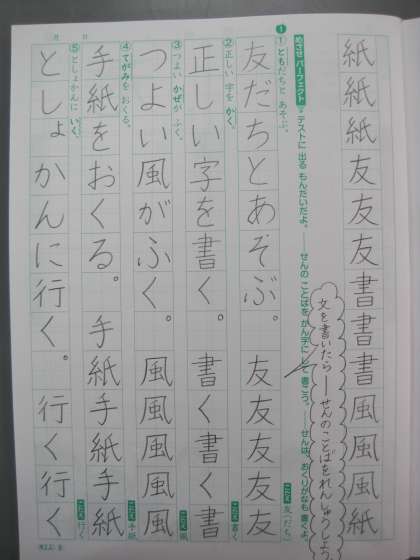 紙紙紙友友友書書書風風風紙
文を書いたら――せんのことばをれんしゅうしよう。
めざせ パーフェクト テストに 出る もんだいだよ。――せんの ことばを かん字に して 書こう。――せんは、おくりがなも 書くよ。
1
①ともだちと あそぶ。
こたえ 友(だち)
友だちとあそぶ。 友友友友
②正しい 字を かく。
こたえ 書く
正しい字を書く。 書く書く
③つよい かぜが ふく。
こたえ 風
つよい風がふく。 風風風風
④てがみを おくる。
こたえ 手紙
手紙をおくる。 手紙手紙手紙
⑤としょかんに いく。
こたえ 行く
としょかんに行く。 行く行く
月 日